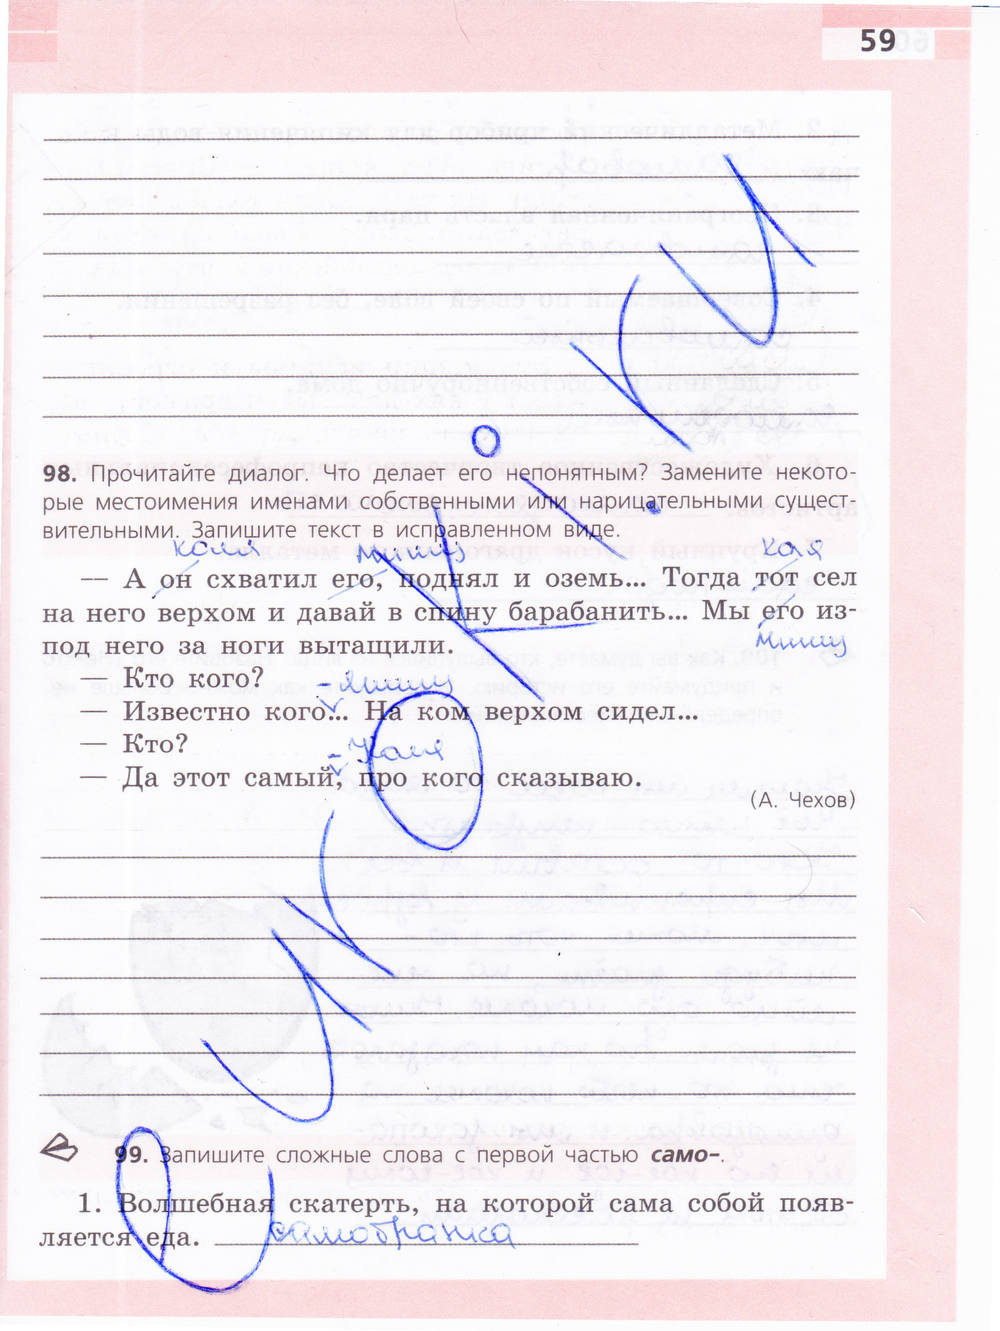 59
98. Прочитайте диалог. Что делает его непонятным? Замените некото-
рые местоимения именами собственными или нарицательными сущест-
вительными. Запишите текст в исправленном виде.
Коля Мишу Коля
— А он схватил его, поднял и оземь... Тогда тот сел
на него верхом и давай в спину барабанить... Мы его из-
под него за ноги вытащили. Мишу
— Кто кого? - Мишу
— Известно кого... На ком верхом сидел...
— Кто? - Коля
— Да этот самый, про кого сказываю.
(А. Чехов)
99. Запишите сложные слова с первой частью само–.
1. Волшебная скатерть, на которой сама собой появ-
ляется еда. самобранка